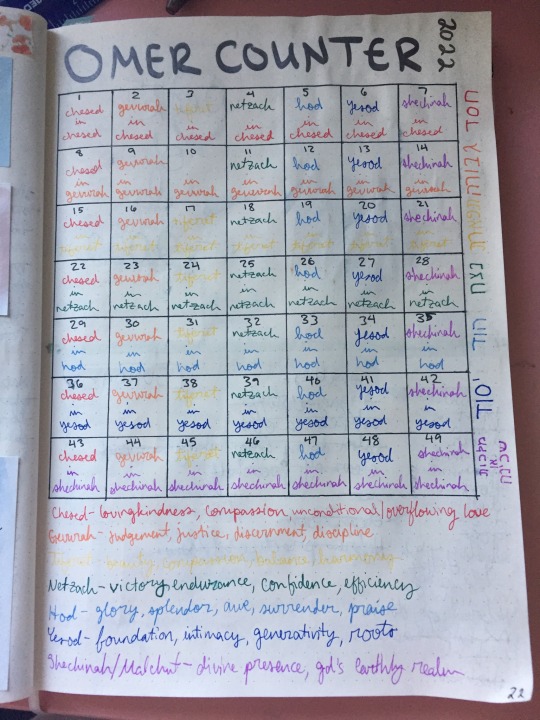 OMER COUNTER 2022
1 2 3 4 5 6 7
chesed gevurah tiferet netzach hod yesod shechinah
in in in in in in in
chesed chesed chesed chesed chesed chesed chesed
חסד
8 9 10 11 12 13 14
chesed gevurah netzach hod yesod shechinah
in in in in in in in
gevurah gevurah gevurah gevurah gevurah gevurah gevurah
גבורה
15 16 17 18 19 20 21
chesed gevurah tiferet netzach hod yesod shechinah
in in in in in in in
tiferet tiferet tiferet tiferet tiferet tiferet tiferet
תפארת
22 23 24 25 26 27 28
chesed gevurah tiferet netzach hod yesod shechinah
in in in in in in in
netzach netzach netzach netzach netzach netzach netzach
נצח
29 30 31 32 33 34 35
chesed gevurah tiferet netzach hod yesod shechinah
in in in in in in in
hod hod hod hod hod hod hod
הוד
36 37 38 39 40 41 42
chesed gevurah tiferet netzach hod yesod shechinah
in in in in in in in
yesod yesod yesod yesod yesod yesod yesod
יסוד
43 44 45 46 47 48 49
chesed gevurah tiferet netzach hod yesod shechinah
in in in in in in in
shechinah shechinah shechinah shechinah shechinah shechinah shechinah
מלכות
או
שכינה
Chesed - lovingkindness, compassion, unconditional/overflowing love
Gevurah - judgement, justice, discernment, discipline
Tiferet - beauty, compassion, balance, harmony
Netzach - victory, endurance, confidence, efficiency
Hod - glory, splendor, awe, surrender, praise
Yesod - foundation, intimacy, generativity, roots
Shechinah/Malchut - divine presence, gd's earthly realm
22